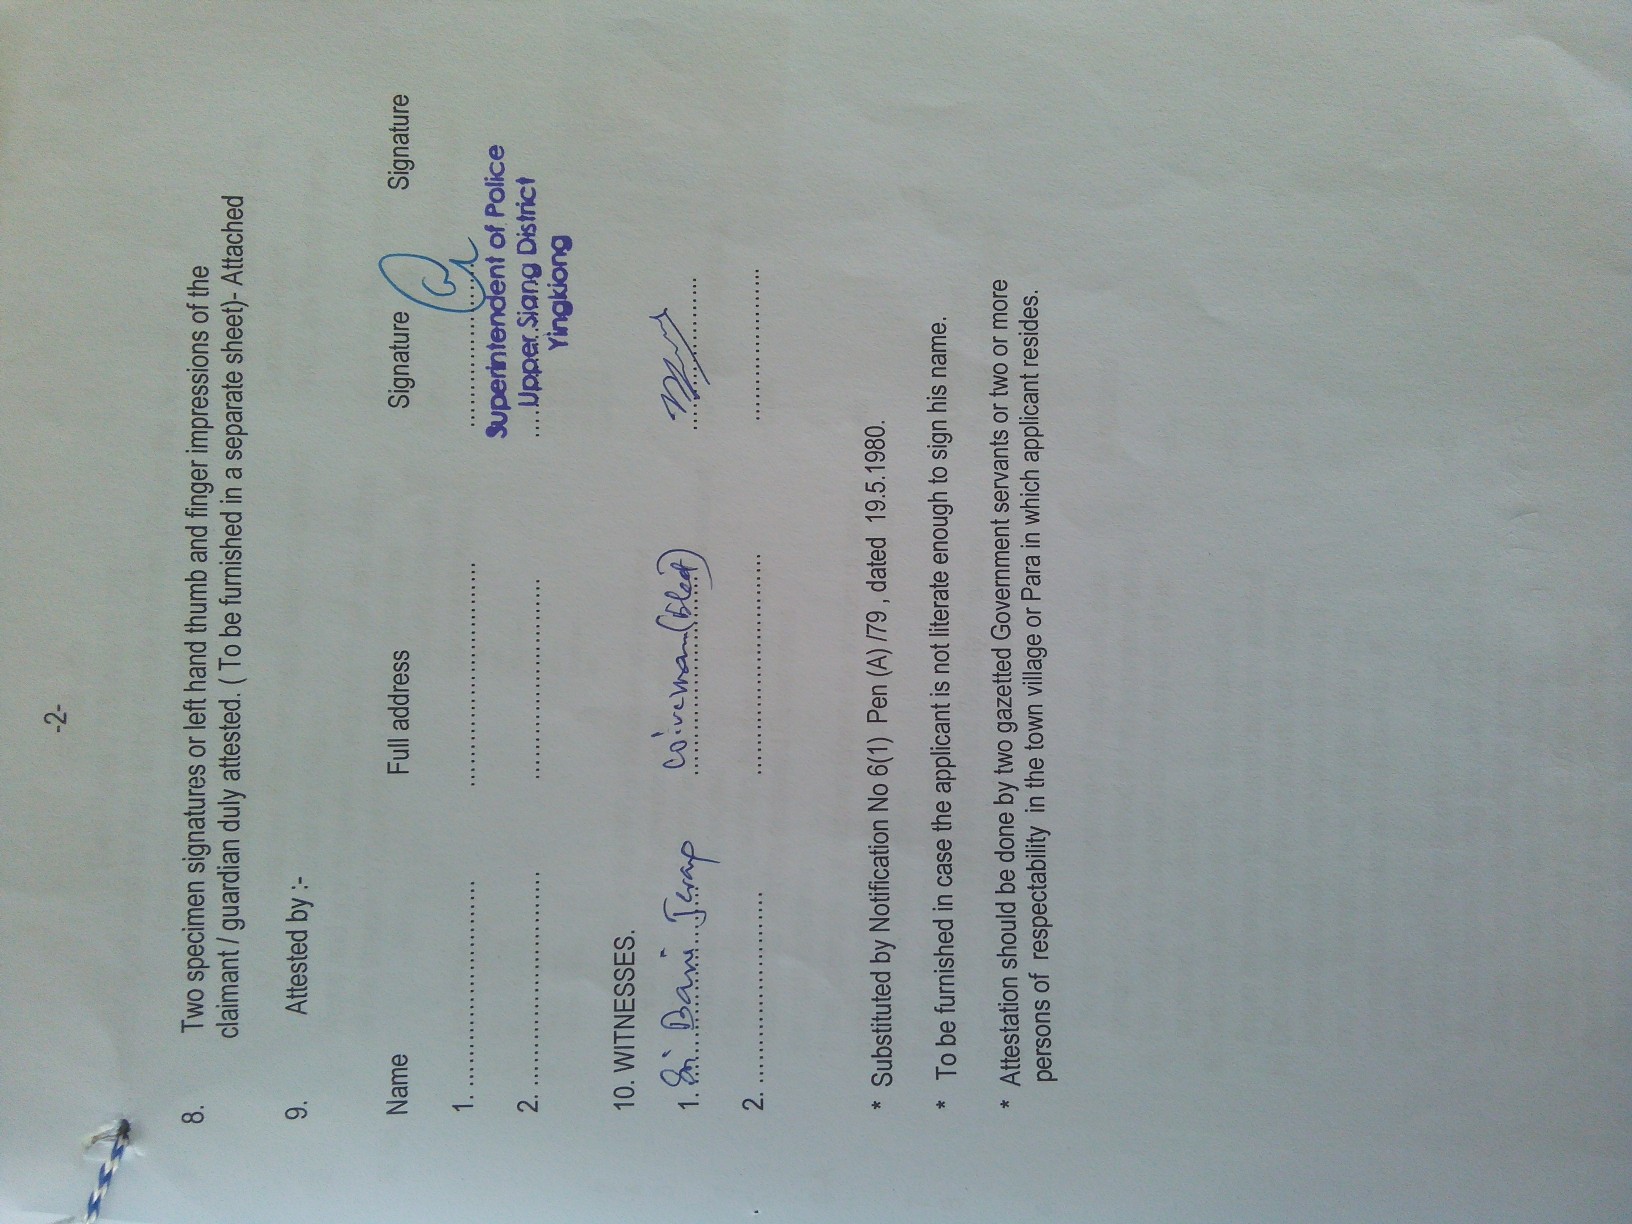 -2-
8. Two specimen signatures or left hand thumb and finger impressions of the
claimant / guardian duly attested. ( To be furnished in a separate sheet)- Attached
9. Attested by :-
Name Full address Signature Signature
1. ........................................ ........................................ ............................
Superintendent of Police
2. ........................................ ........................................ .... Upper Siang District
Yingkiong
10. WITNESSES.
1. Sri Bani Jerap Wireman(Elect)
2. ........................................ ........................................ ............................
* Substituted by Notification No 6(1) Pen (A) /79 , dated 19.5.1980.
* To be furnished in case the applicant is not literate enough to sign his name.
* Attestation should be done by two gazetted Government servants or two or more
persons of respectability in the town village or Para in which applicant resides.